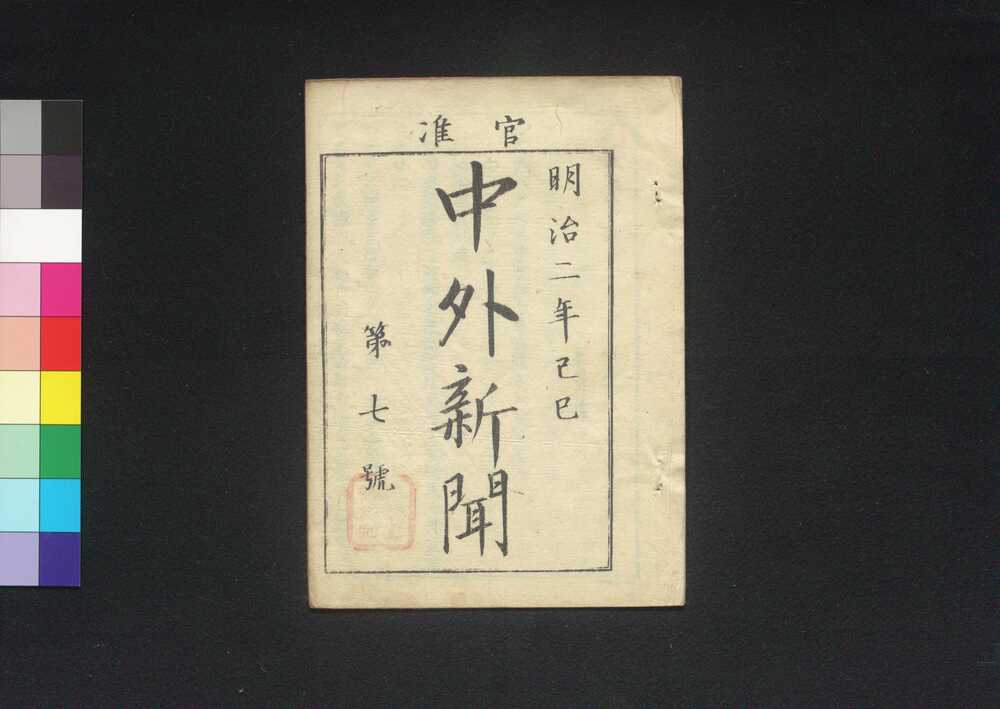 官准
明治二年己巳
中外新聞
第七號